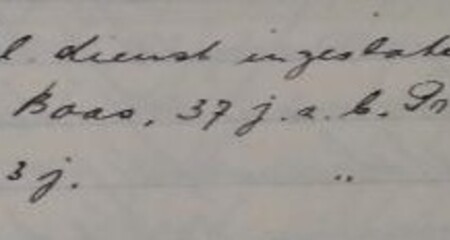 l. dienst ingeslate
Boas, 37 j. a. b. Pr
3 j. "